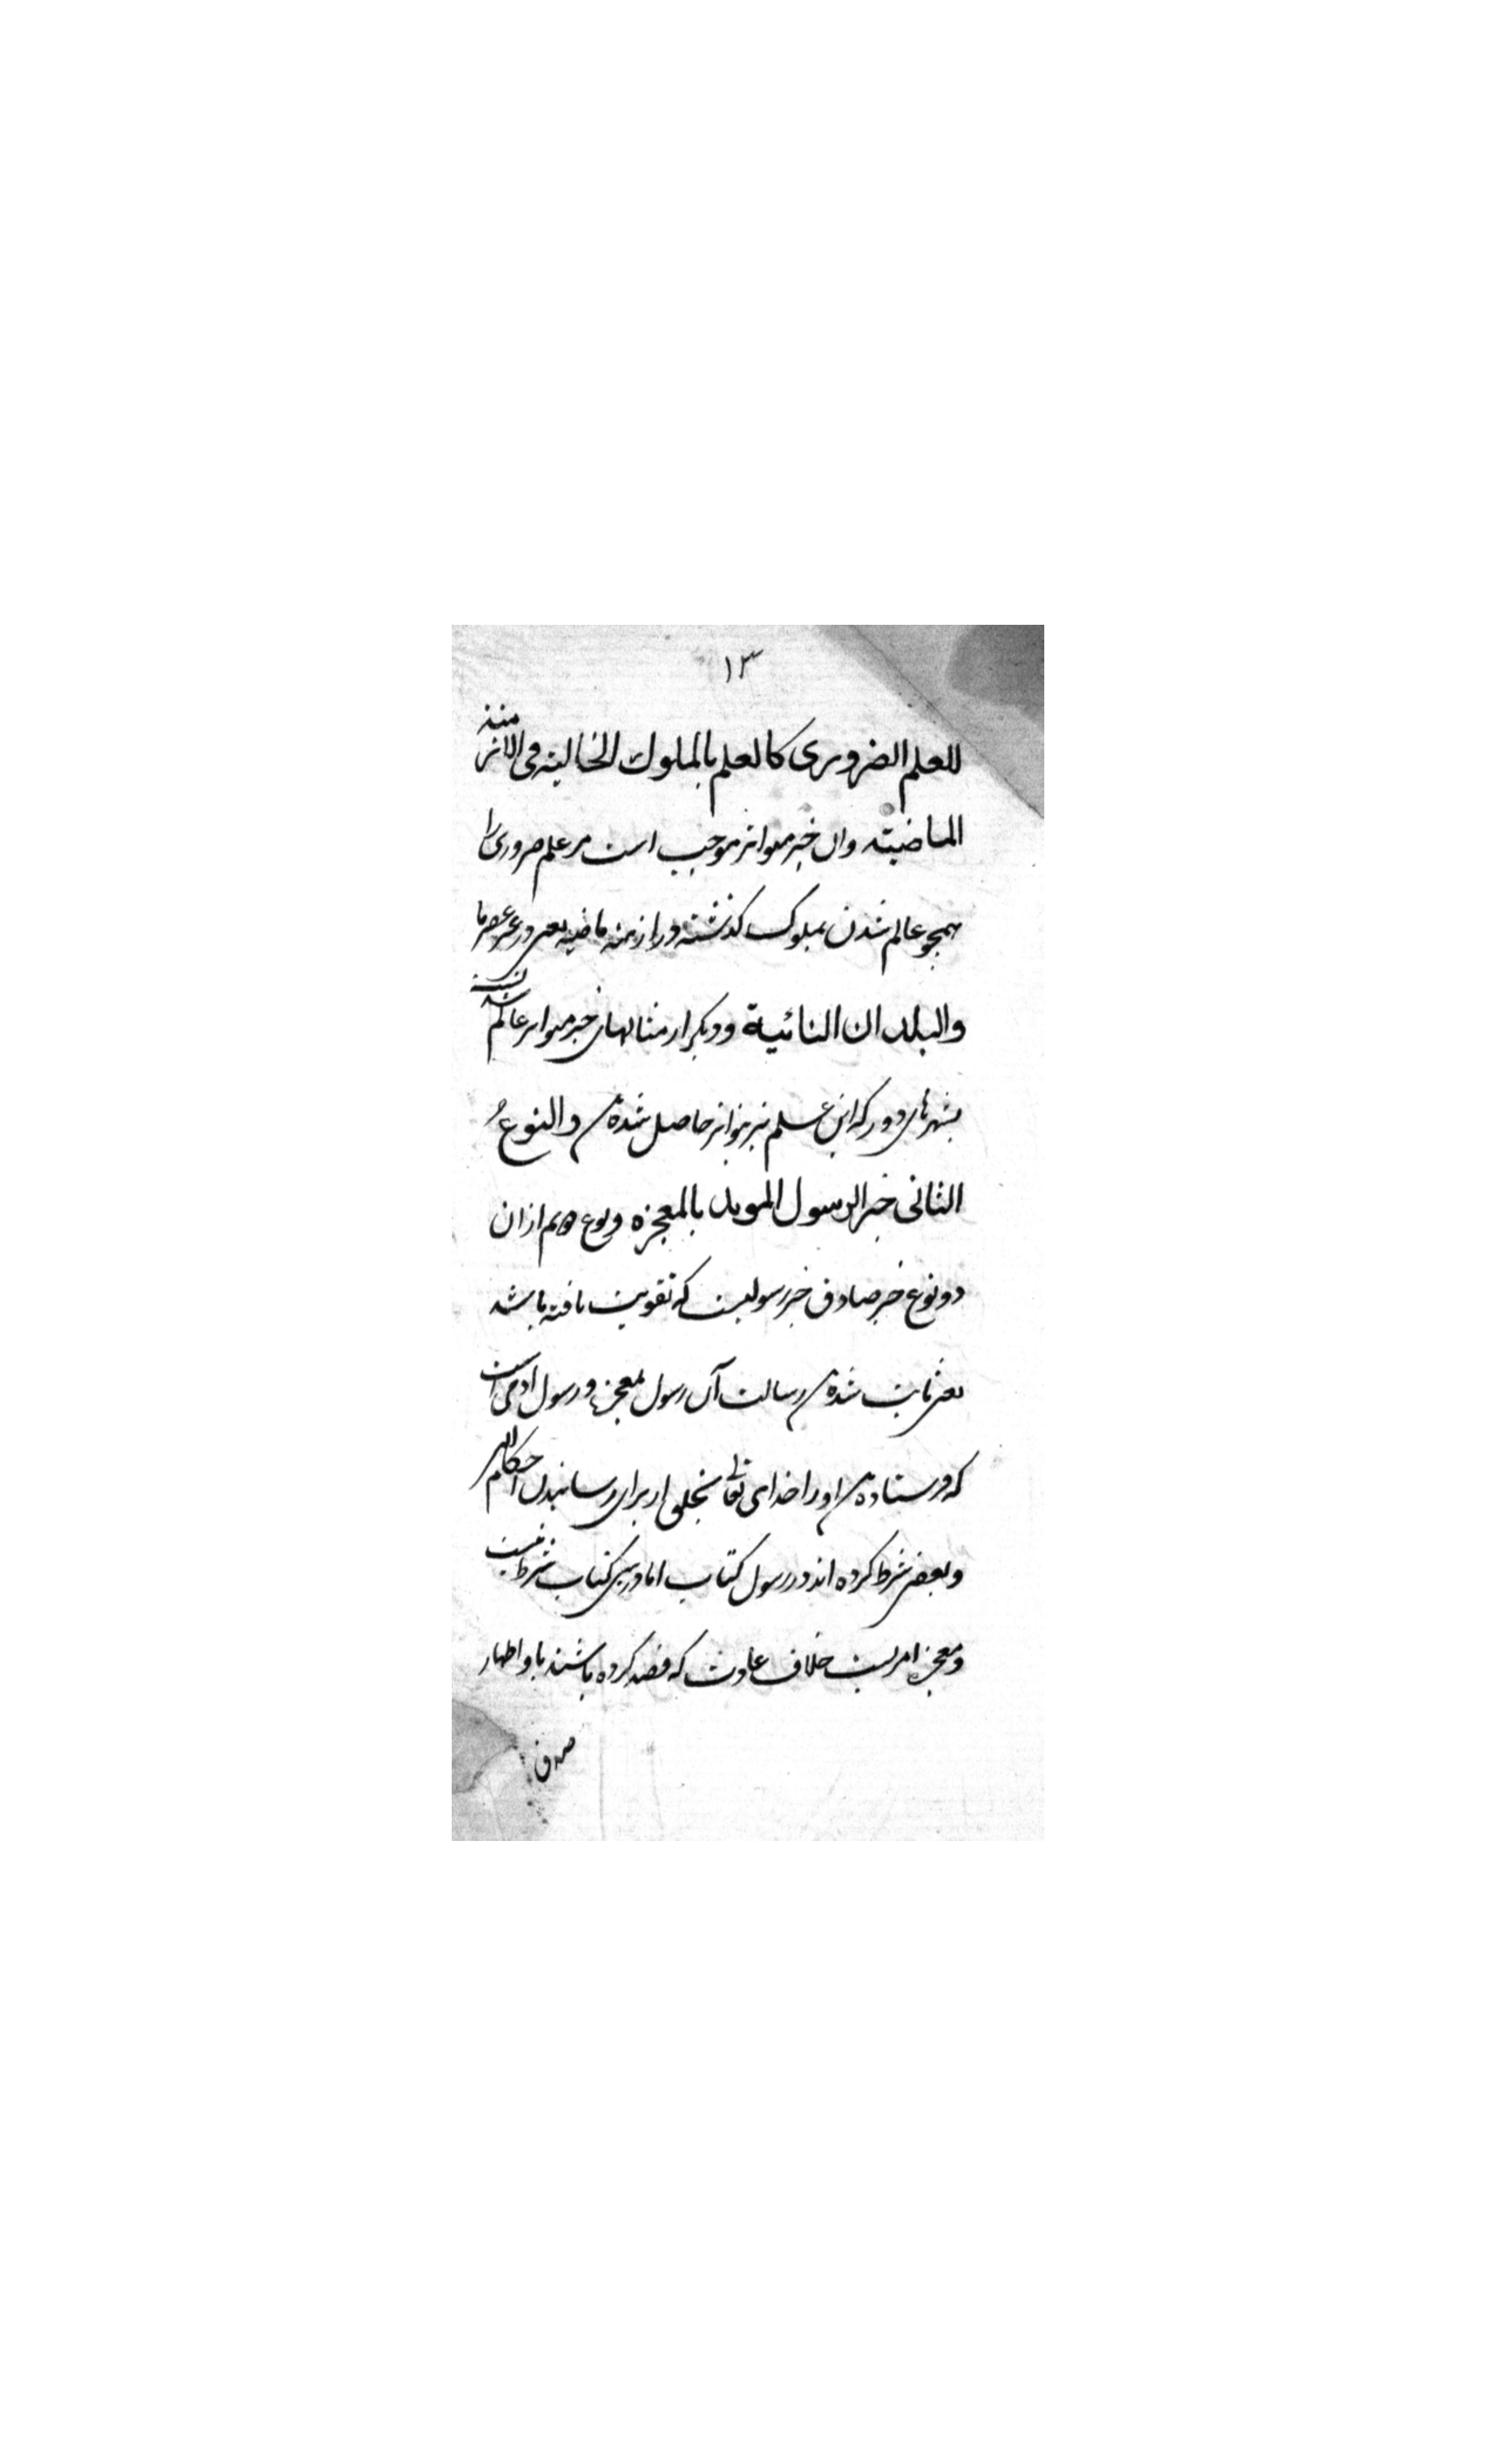 ١٣
للعلم الضرورى كالعلم بالملوك الخاليته فى الازمنة
الماضيته وان خبر متواتر موجب است مر علم ضرورى را
همچو عالم شدن بملوك كذشته در ازمنه ماضيه يعنى در غير عصر ما
والبلدان النائية وديكر از مثالهاى خبر متواتر عالم
بشهرهاى دور كه اين علم نيز بتواتر حاصل شده والنوع
الثانى خبر الرسول المويد بالمعجزه ونوع دويم ازان
دو نوع خبر صادق خبر رسوليست كه تقويت يافته باشد
يعنى ثابت شده رسالت آن رسول بمعجزه ورسول ادمى است
كه فرستاده اورا خداى تعالى بخلق از براى رسانيدن احكام الهى
وبعضى شرط كرده اند در رسول كتاب اما در نبى كتاب شرط نيست
ومعجزه امريست خلاف عادت كه قصد كرده باشند باو اظهار
صدق